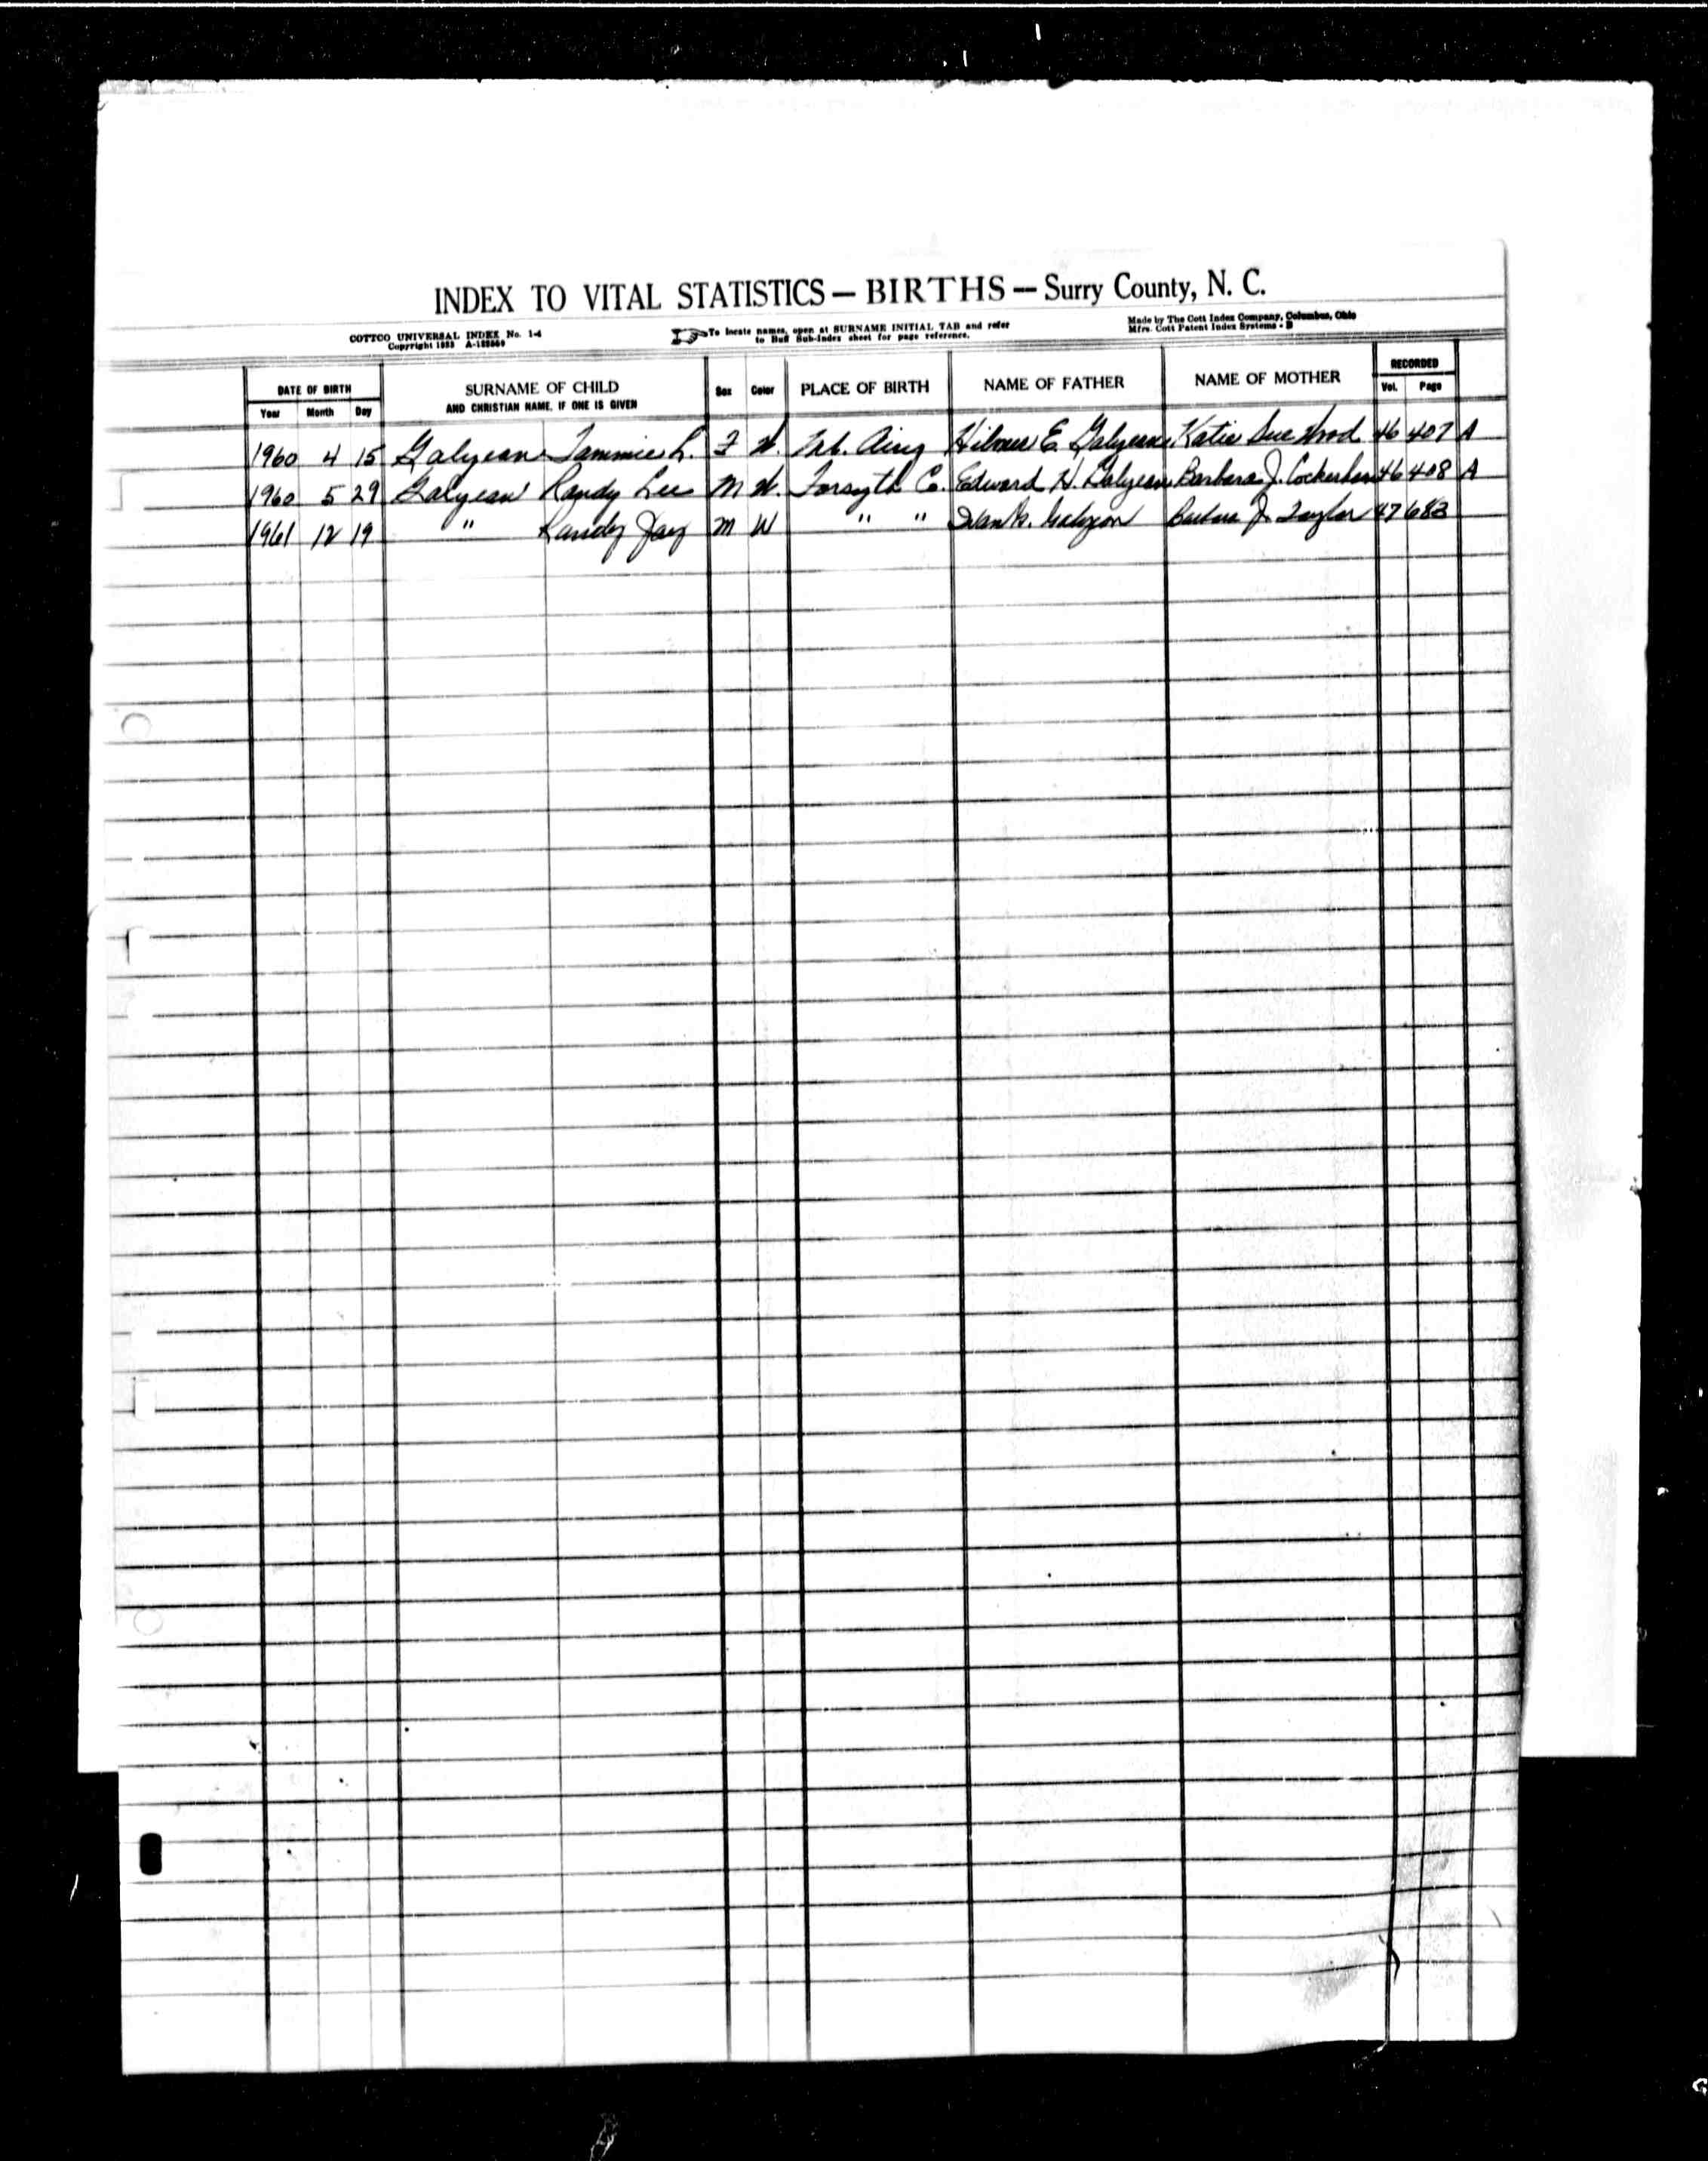 INDEX TO VITAL STATISTICS — BIRTHS — Surry County, N. C.
COTTCO UNIVERSAL INDEX No. 1-4
Copyright
To locate names, open at SURNAME INITIAL TAB and refer
to Buff Sub-Index sheet for page reference.
Made by The Cott Index Company, Columbus, Ohio
Mfrs. Cott Patent Index Systems - B
DATE OF BIRTH SURNAME OF CHILD Sex Color PLACE OF BIRTH NAME OF FATHER NAME OF MOTHER RECORDED
Year Month Day AND CHRISTIAN NAME, IF ONE IS GIVEN Vol. Page
1960 4 15 Galyean Tammie L. F W. Mt. Airy E. Galyean Katie Sue Wood 46 407 A
1960 5 29 Galyean Randy Lee M W. Forsyth Co. Edward H. Galyean Barbara J. Cockerham 46 408 A
1961 12 19 " Randy Jay M W " " Galyean Barbara J. Taylor 47 683